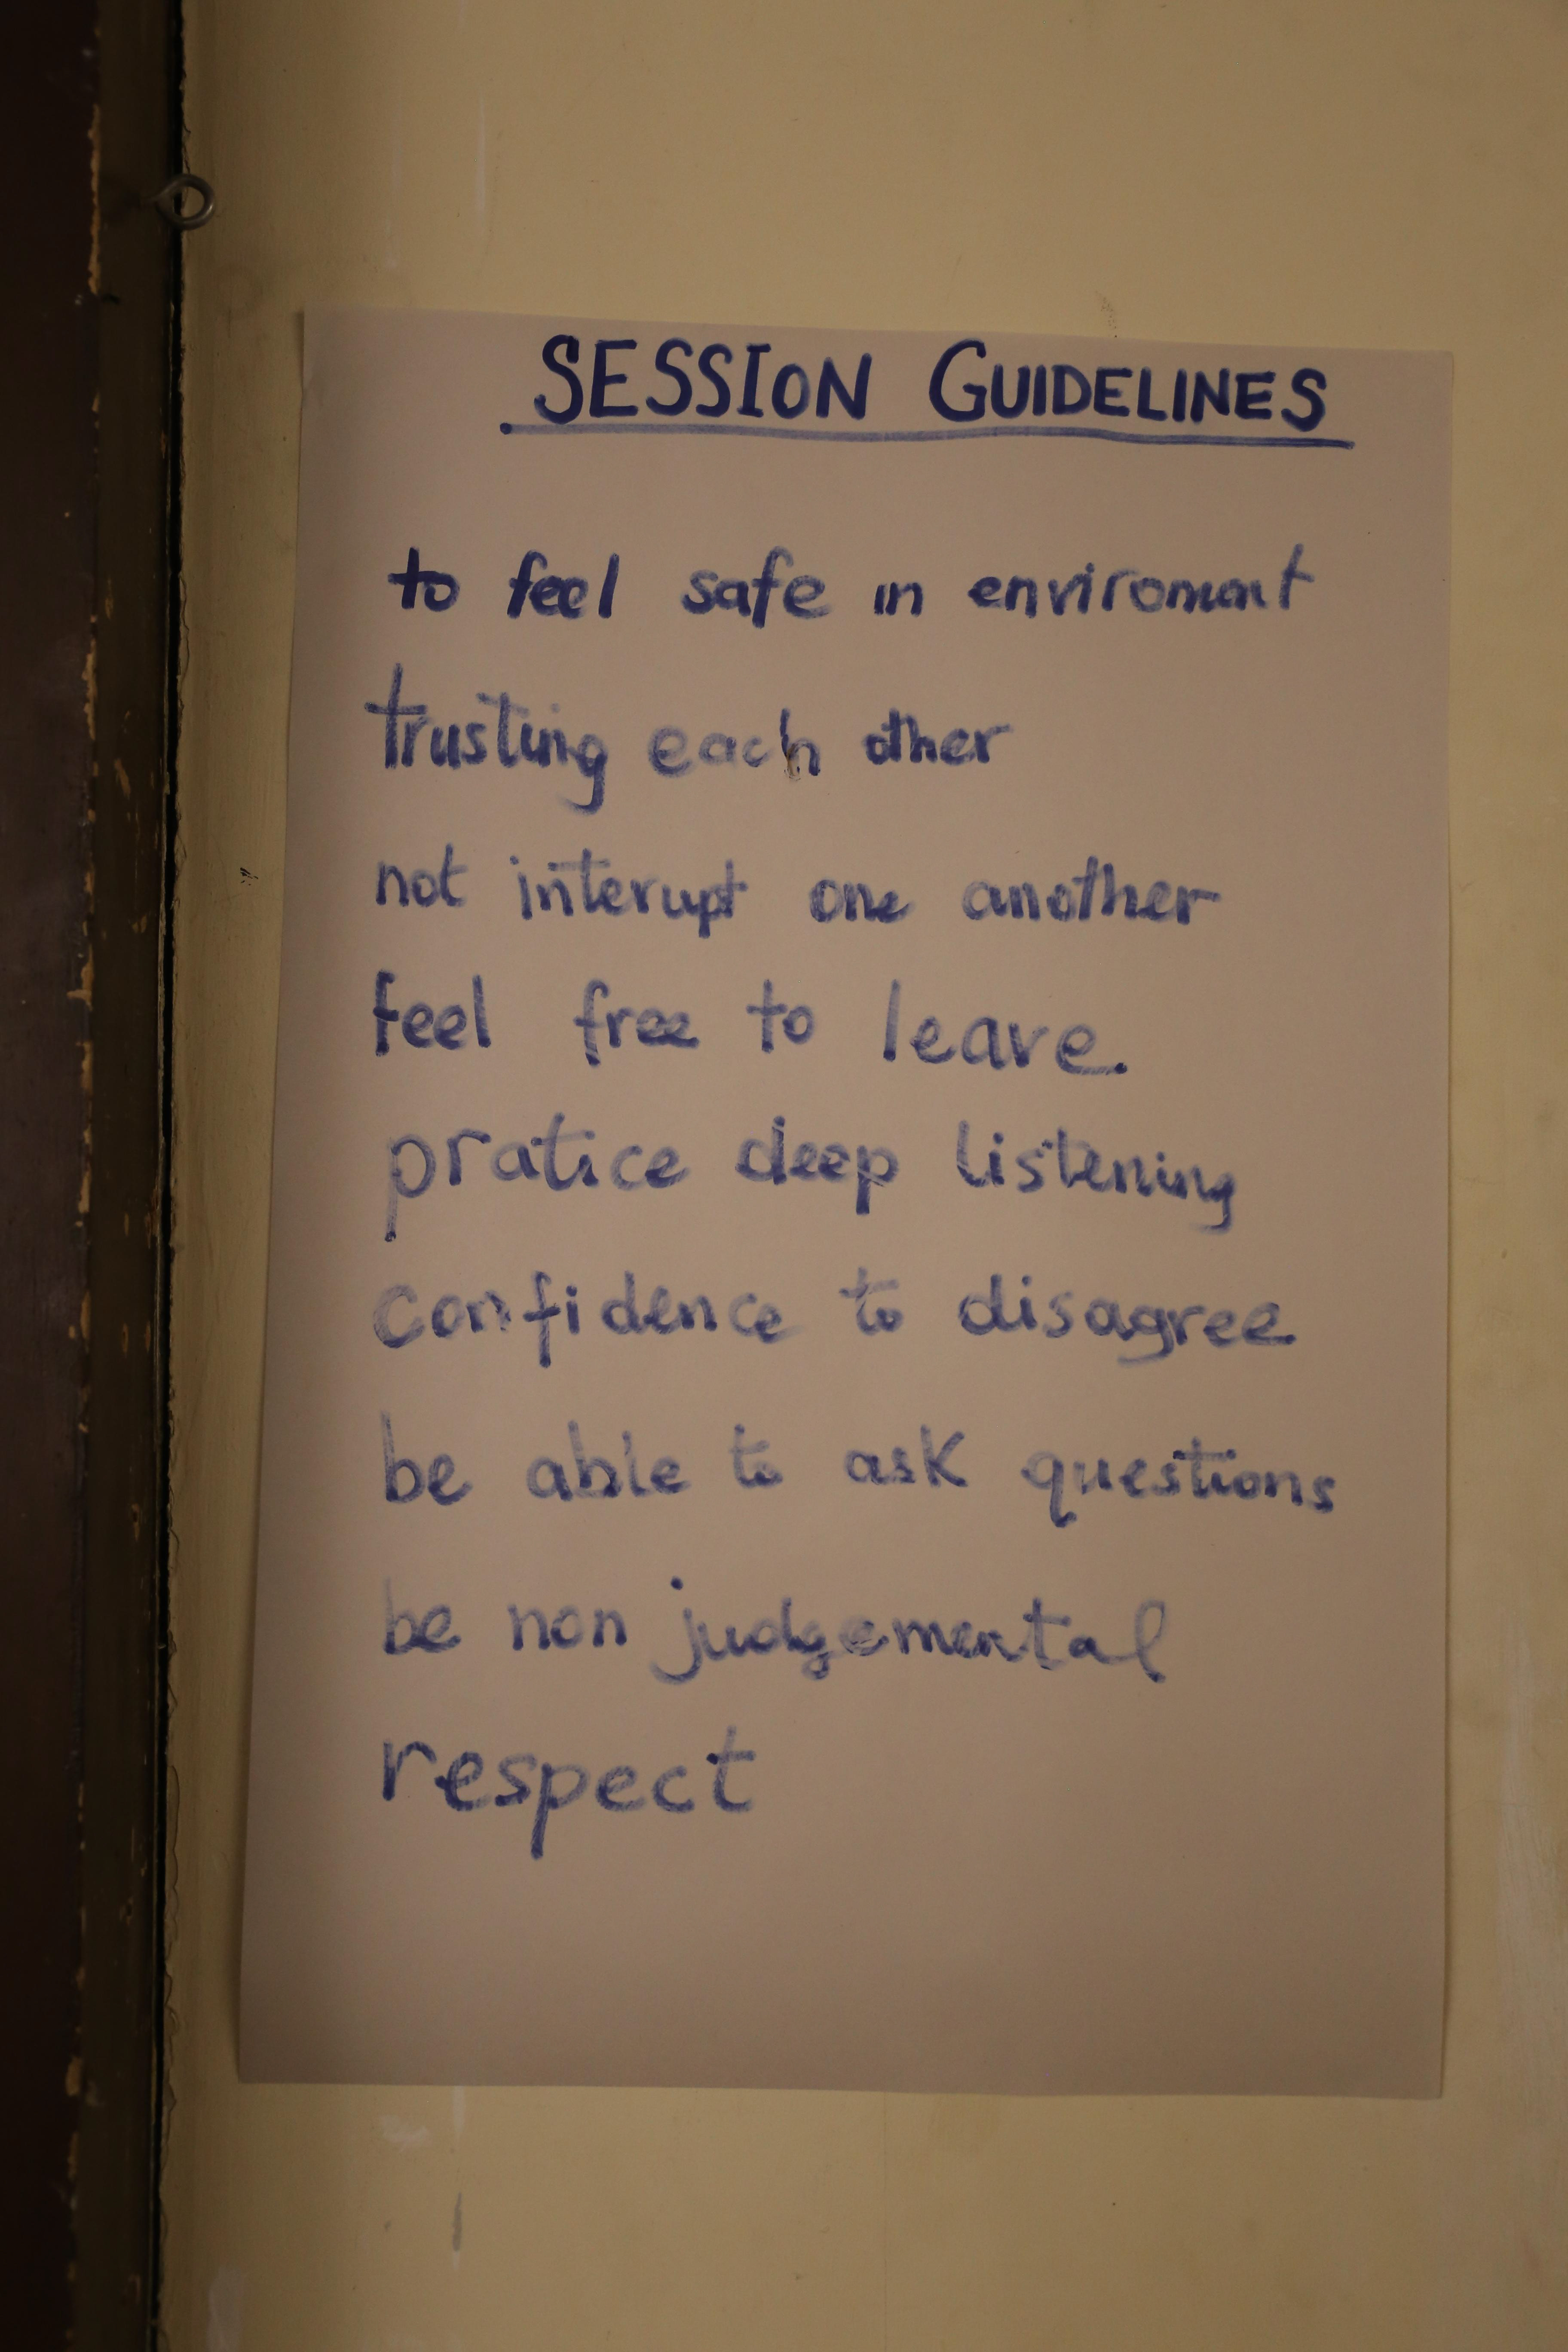 SESSION GUIDELINES
to feel safe in enviroment
trusting each other
not interupt one another
feel free to leave.
pratice deep listening
confidence to disagree
be able to ask questions
be non judgemental
respect